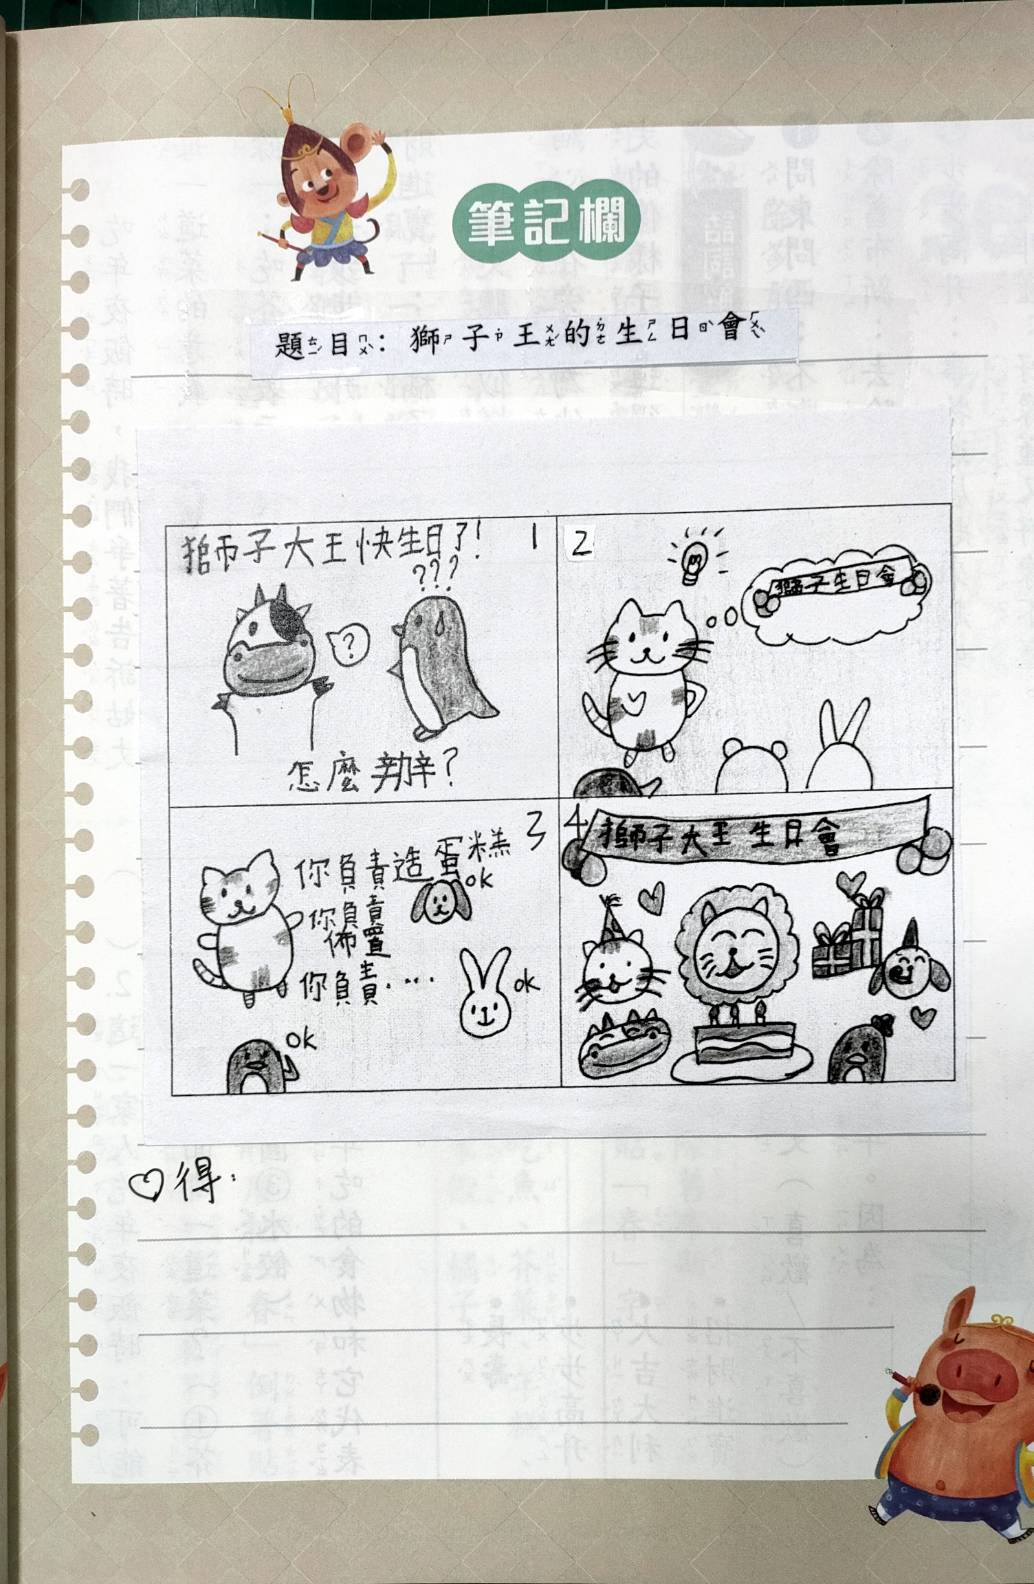 筆記欄
題ㄊㄧˊ目ㄇㄨˋ：獅ㄕ子ㄗˇ王ㄨㄤˊ的ㄉㄜ˙生ㄕㄥ日ㄖˋ會ㄏㄨㄟˋ
獅子大王快生日了! 1
???
?
怎麼辦?
2
獅子生日會
3
你負責造蛋糕
ok
你負責佈置
你負責....
ok
ok
4
獅子大王生日會
♡得: